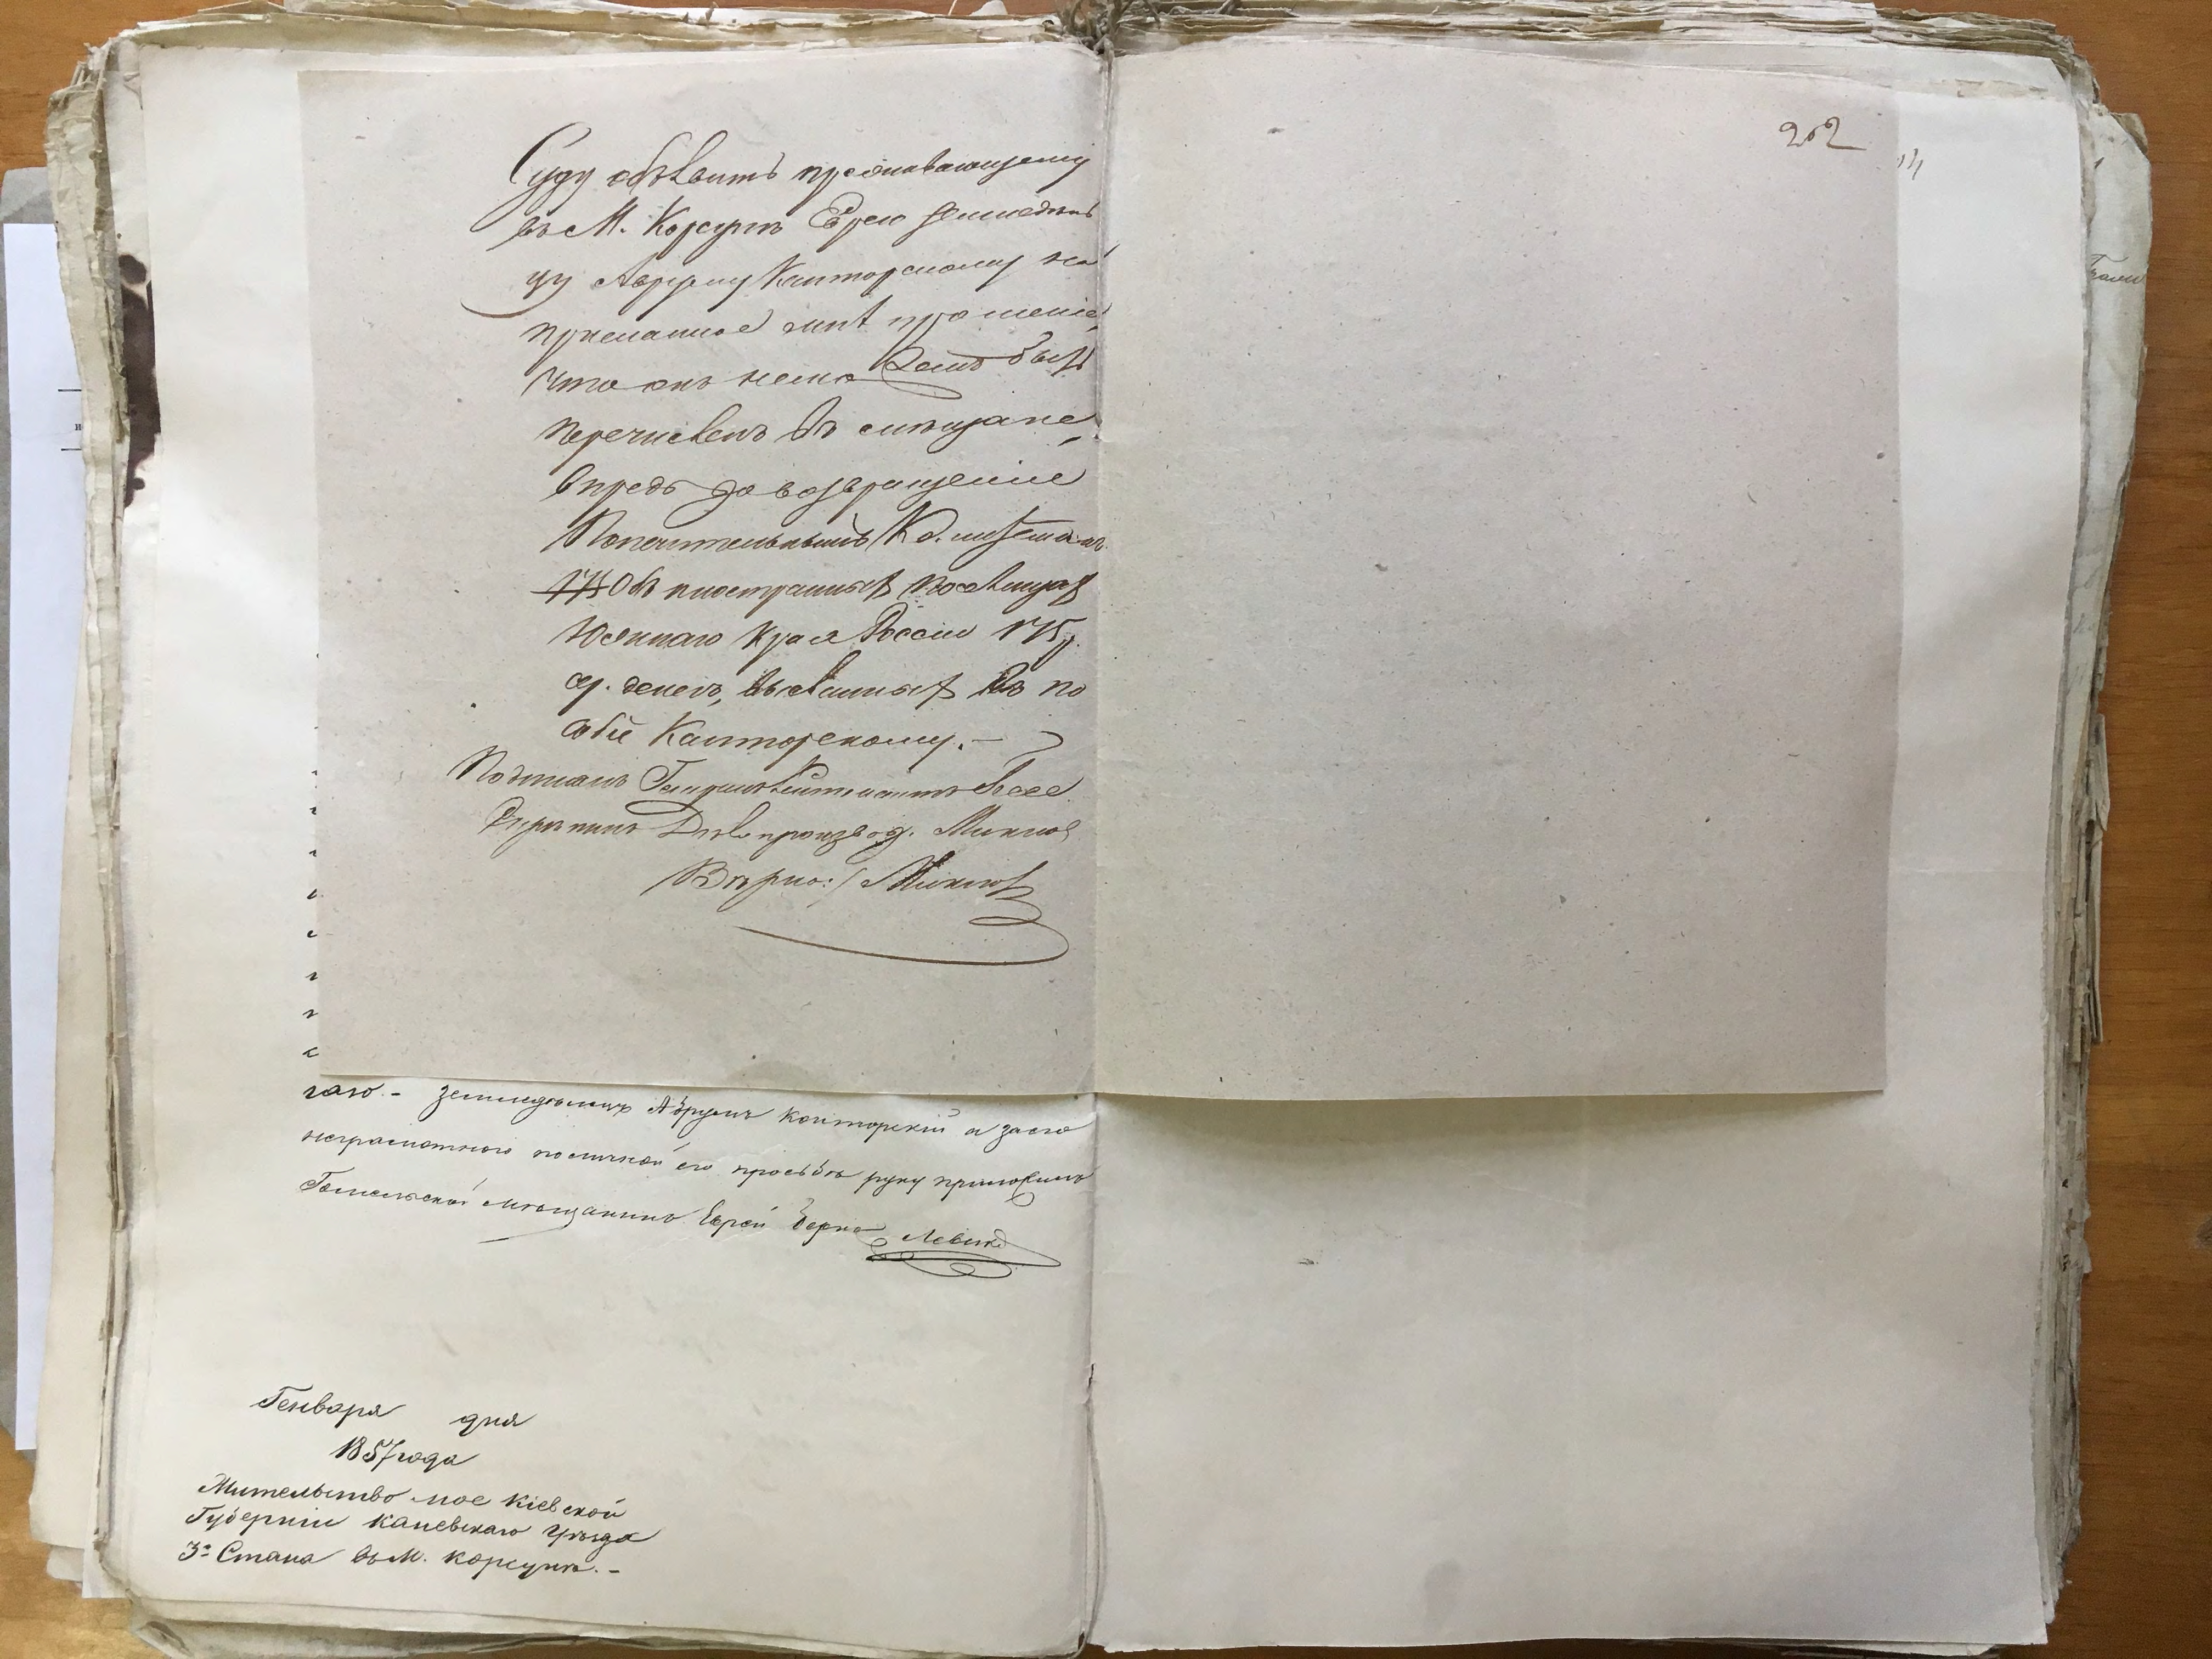 202
Суду объявить проживающему
въ М. Корсунѣ Еврею Земледѣль
цу Абруму Канторскому на
присланное мнѣ прошеніе,
что онъ немо жетъ быть
перечисленъ въ мѣщане,
впредь до возвращенія
Попечительнымъ Комитетомъ
Объ иностранныхъ поселенцахъ
Южнаго Края Россіи 175 р.
ср. денегъ, высланныхъ въ по
собіе Канторскому. –
Подписалъ Генералъ Лейтенантъ Гессе
Скрѣпилъ Дѣлопроизвод.
Вѣрно:
гаю. – Земледѣлецъ Абрумъ Канторскій а заего
неграмотнаго по личной его просьбѣ руку приложилъ
Гомельской мѣщанинъ Еврей Берко Левинъ
Генваря дня
1857 года
Жительство мое Кіевской
Губерніи Каневскаго Уѣзда
3го Стана въ М. Корсунѣ. –